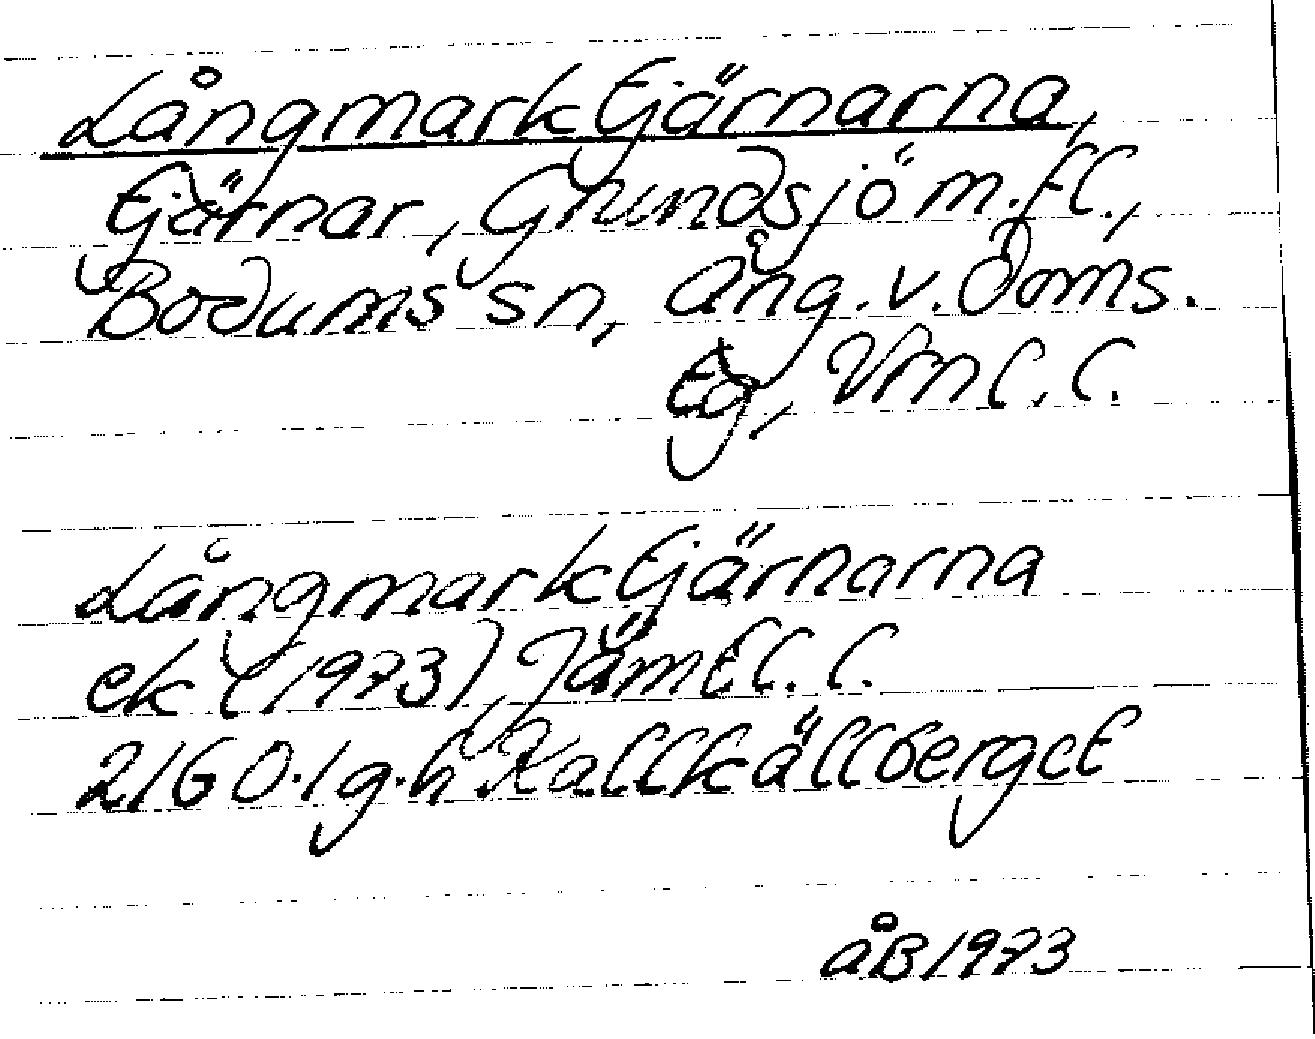 Långmarktjärnarna,
tjärnar, Grundsjö m.fl.,
Bodums sn, Ång. v. Doms.
tg, Vrnl. l.
Långmarktjärnarna
ek (1973), Jämtl. l.
21G 0.1 g.h. Kallkällberget
ÅB 1973